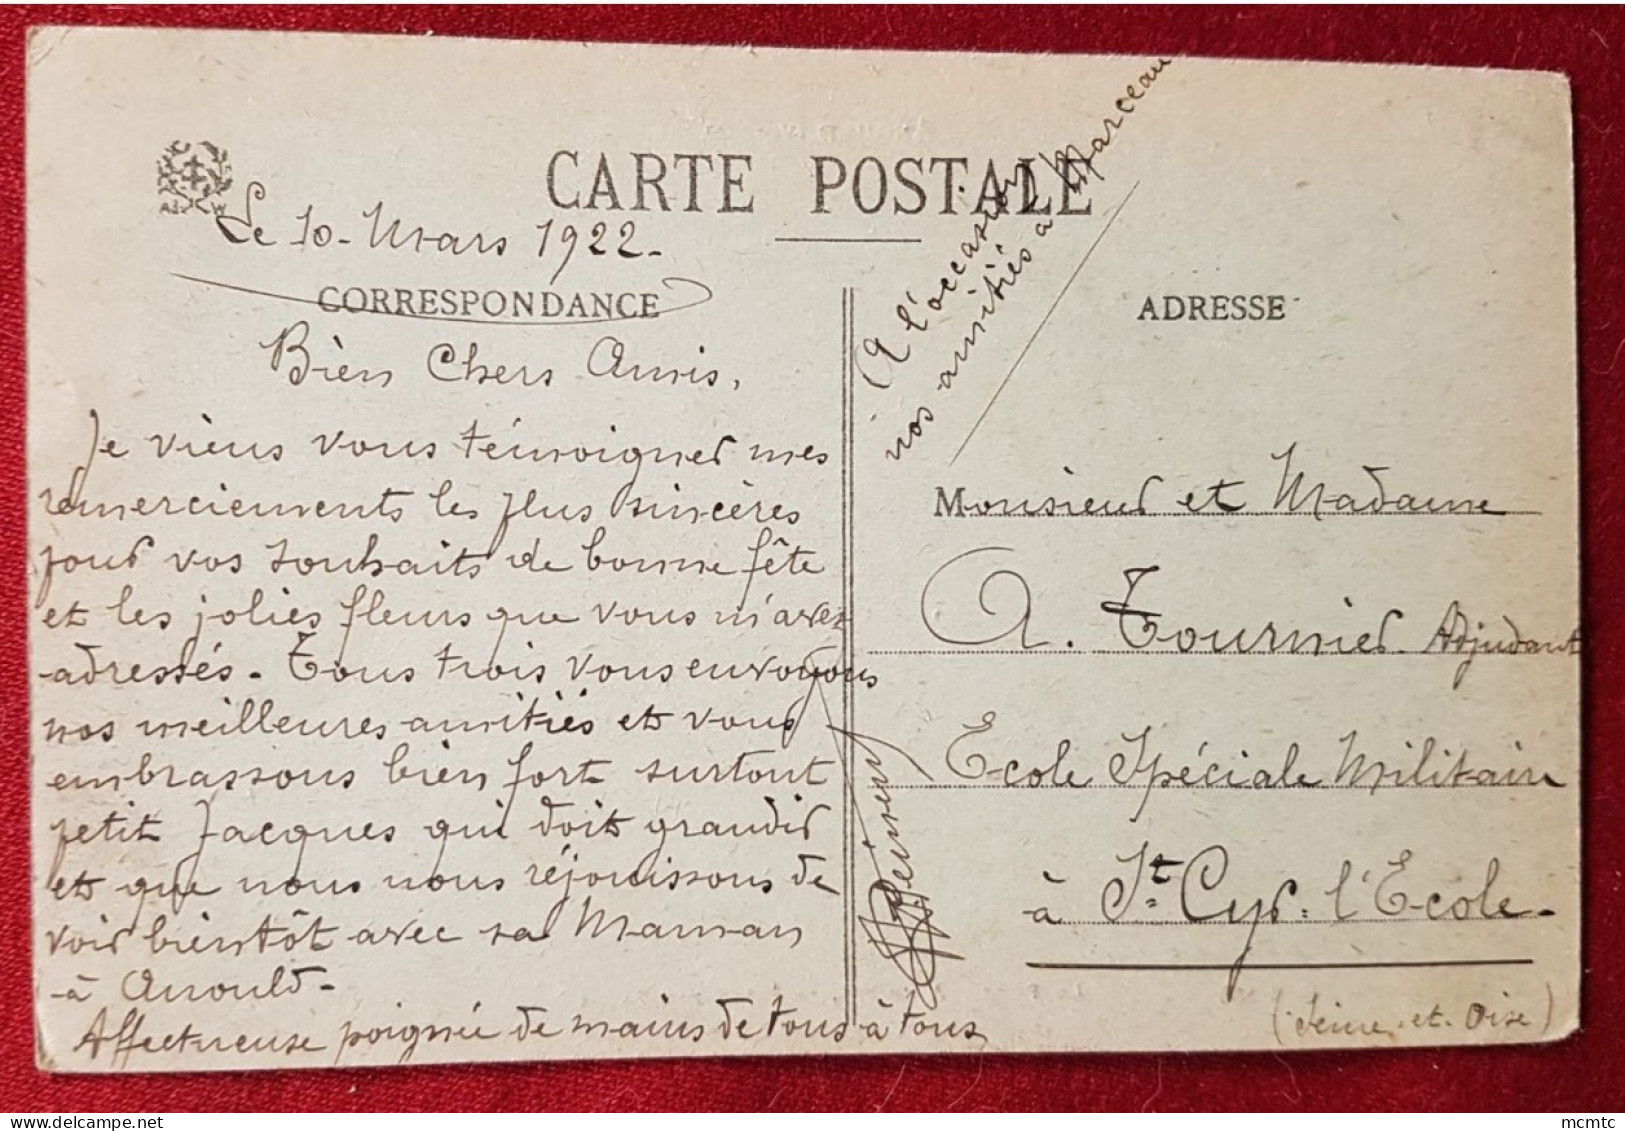 CARTE POSTALE
Le 10 - Mars 1922 -
CORRESPONDANCE
Bien Chers Amis,
Je viens vous témoigner mes
remerciements les plus sincères
pour vos souhaits de bonne fête
et les jolies fleurs que vous m'avez
adressés - Tous trois vous envoyons
nos meilleures amitiés et vous
embrassons bien fort surtout
petit Jacques qui doit grandir
et que nous nous réjouissons de
voir bientôt avec sa Maman
à Anould -
Affectueuse poignée de mains de tous à tous
A l'occasion
nos amitiés à Marceau
ADRESSE
Monsieur et Madame
A. Tournier Adjudant
Ecole Spéciale Militaire
à St Cyr l'Ecole -
(Seine et Oise)
mcmtc